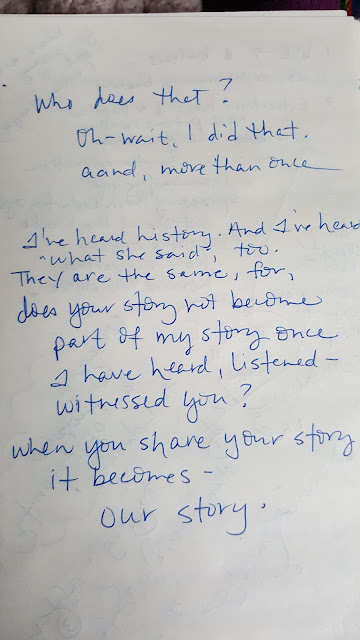 Who does that?
Oh-wait, I did that.
aand, more than once
I've heard history. And I've heard
"what she said", too.
They are the same, for,
does your story not become
part of my story once
I have heard, listened-
witnessed you?
when you share your story
it becomes-
our story.